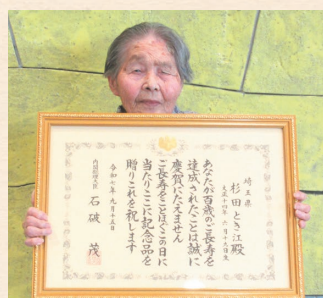 埼玉県
杉田とき江殿
大正十四年六月十五日生
あなたが百歳のご長寿を
達成されたことは誠に
慶賀にたえません
ご長寿をことほぐこの日に
当たりここに記念品を
贈りこれを祝します
令和七年九月十五日
内閣総理大臣 石破茂